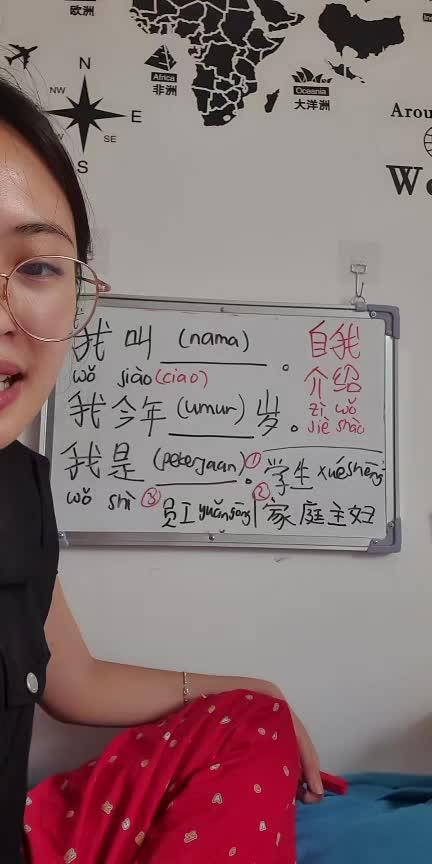 欧洲
N
NW
E
SE
S
Africa
非洲
Oceania
大洋洲
Arou
W
我叫 (nama) 。
wǒ jiào (ciao)
我今年 (umur) 岁。
我是 (pekerjaan) 。
wǒ shì
自我
介绍
zì wǒ
jiè shào
① 学生 xuésheng
② 家庭主妇
③ 员工 yuángōng